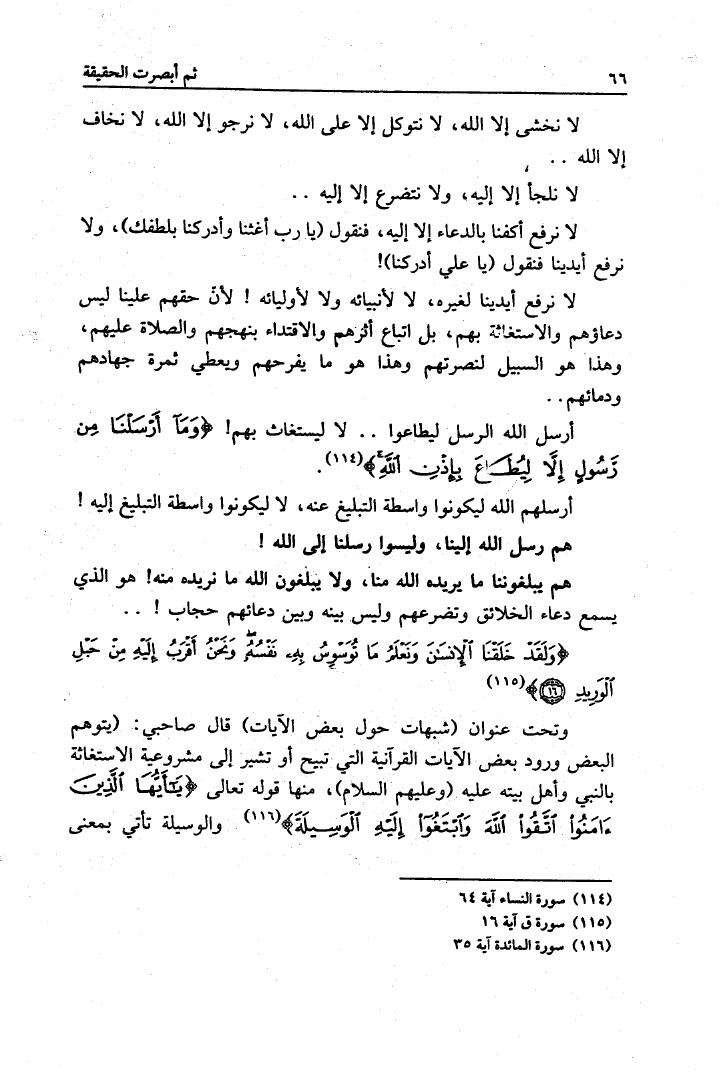 ٦٦
ثم أبصرت الحقيقة
لا نخشى إلا الله، لا نتوكل إلا على الله، لا نرجو إلا الله، لا نخاف
إلا الله . .
لا نلجأ إلا إليه، ولا نتضرع إلا إليه . .
لا نرفع أكفنا بالدعاء إلا إليه، فنقول (يا رب أغثنا وأدركنا بلطفك)، ولا
نرفع أيدينا فنقول (يا علي أدركنا)!
لا نرفع أيدينا لغيره، لا لأنبيائه ولا لأوليائه ! لأنّ حقهم علينا ليس
دعاؤهم والاستغاثة بهم، بل اتباع أثرهم والاقتداء بنهجهم والصلاة عليهم،
وهذا هو السبيل لنصرتهم وهذا هو ما يفرحهم ويعطي ثمرة جهادهم
ودمائهم . .
أرسل الله الرسل ليطاعوا . . لا ليستغاث بهم! ﴿وَمَآ أَرْسَلْنَا مِن
رَّسُولٍ إِلَّا لِيُطَاعَ بِإِذْنِ ٱللَّهِۚ﴾(١١٤).
أرسلهم الله ليكونوا واسطة التبليغ عنه، لا ليكونوا واسطة التبليغ إليه !
هم رسل الله إلينا، وليسوا رسلنا إلى الله !
هم يبلغوننا ما يريده الله منا، ولا يبلغون الله ما نريده منه! هو الذي
يسمع دعاء الخلائق وتضرعهم وليس بينه وبين دعائهم حجاب ! . .
﴿وَلَقَدْ خَلَقْنَا ٱلْإِنسَٰنَ وَنَعْلَمُ مَا تُوَسْوِسُ بِهِۦ نَفْسُهُۥۖ وَنَحْنُ أَقْرَبُ إِلَيْهِ مِنْ حَبْلِ
ٱلْوَرِيدِ ١٦﴾(١١٥)
وتحت عنوان (شبهات حول بعض الآيات) قال صاحبي: (يتوهم
البعض ورود بعض الآيات القرآنية التي تبيح أو تشير إلى مشروعية الاستغاثة
بالنبي وأهل بيته عليه (وعليهم السلام)، منها قوله تعالى ﴿يَٰٓأَيُّهَا ٱلَّذِينَ
ءَامَنُوا۟ ٱتَّقُوا۟ ٱللَّهَ وَٱبْتَغُوٓا۟ إِلَيْهِ ٱلْوَسِيلَةَ﴾(١١٦) والوسيلة تأتي بمعنى
(١١٤) سورة النساء آية ٦٤
(١١٥) سورة ق آية ١٦
(١١٦) سورة المائدة آية ٣٥